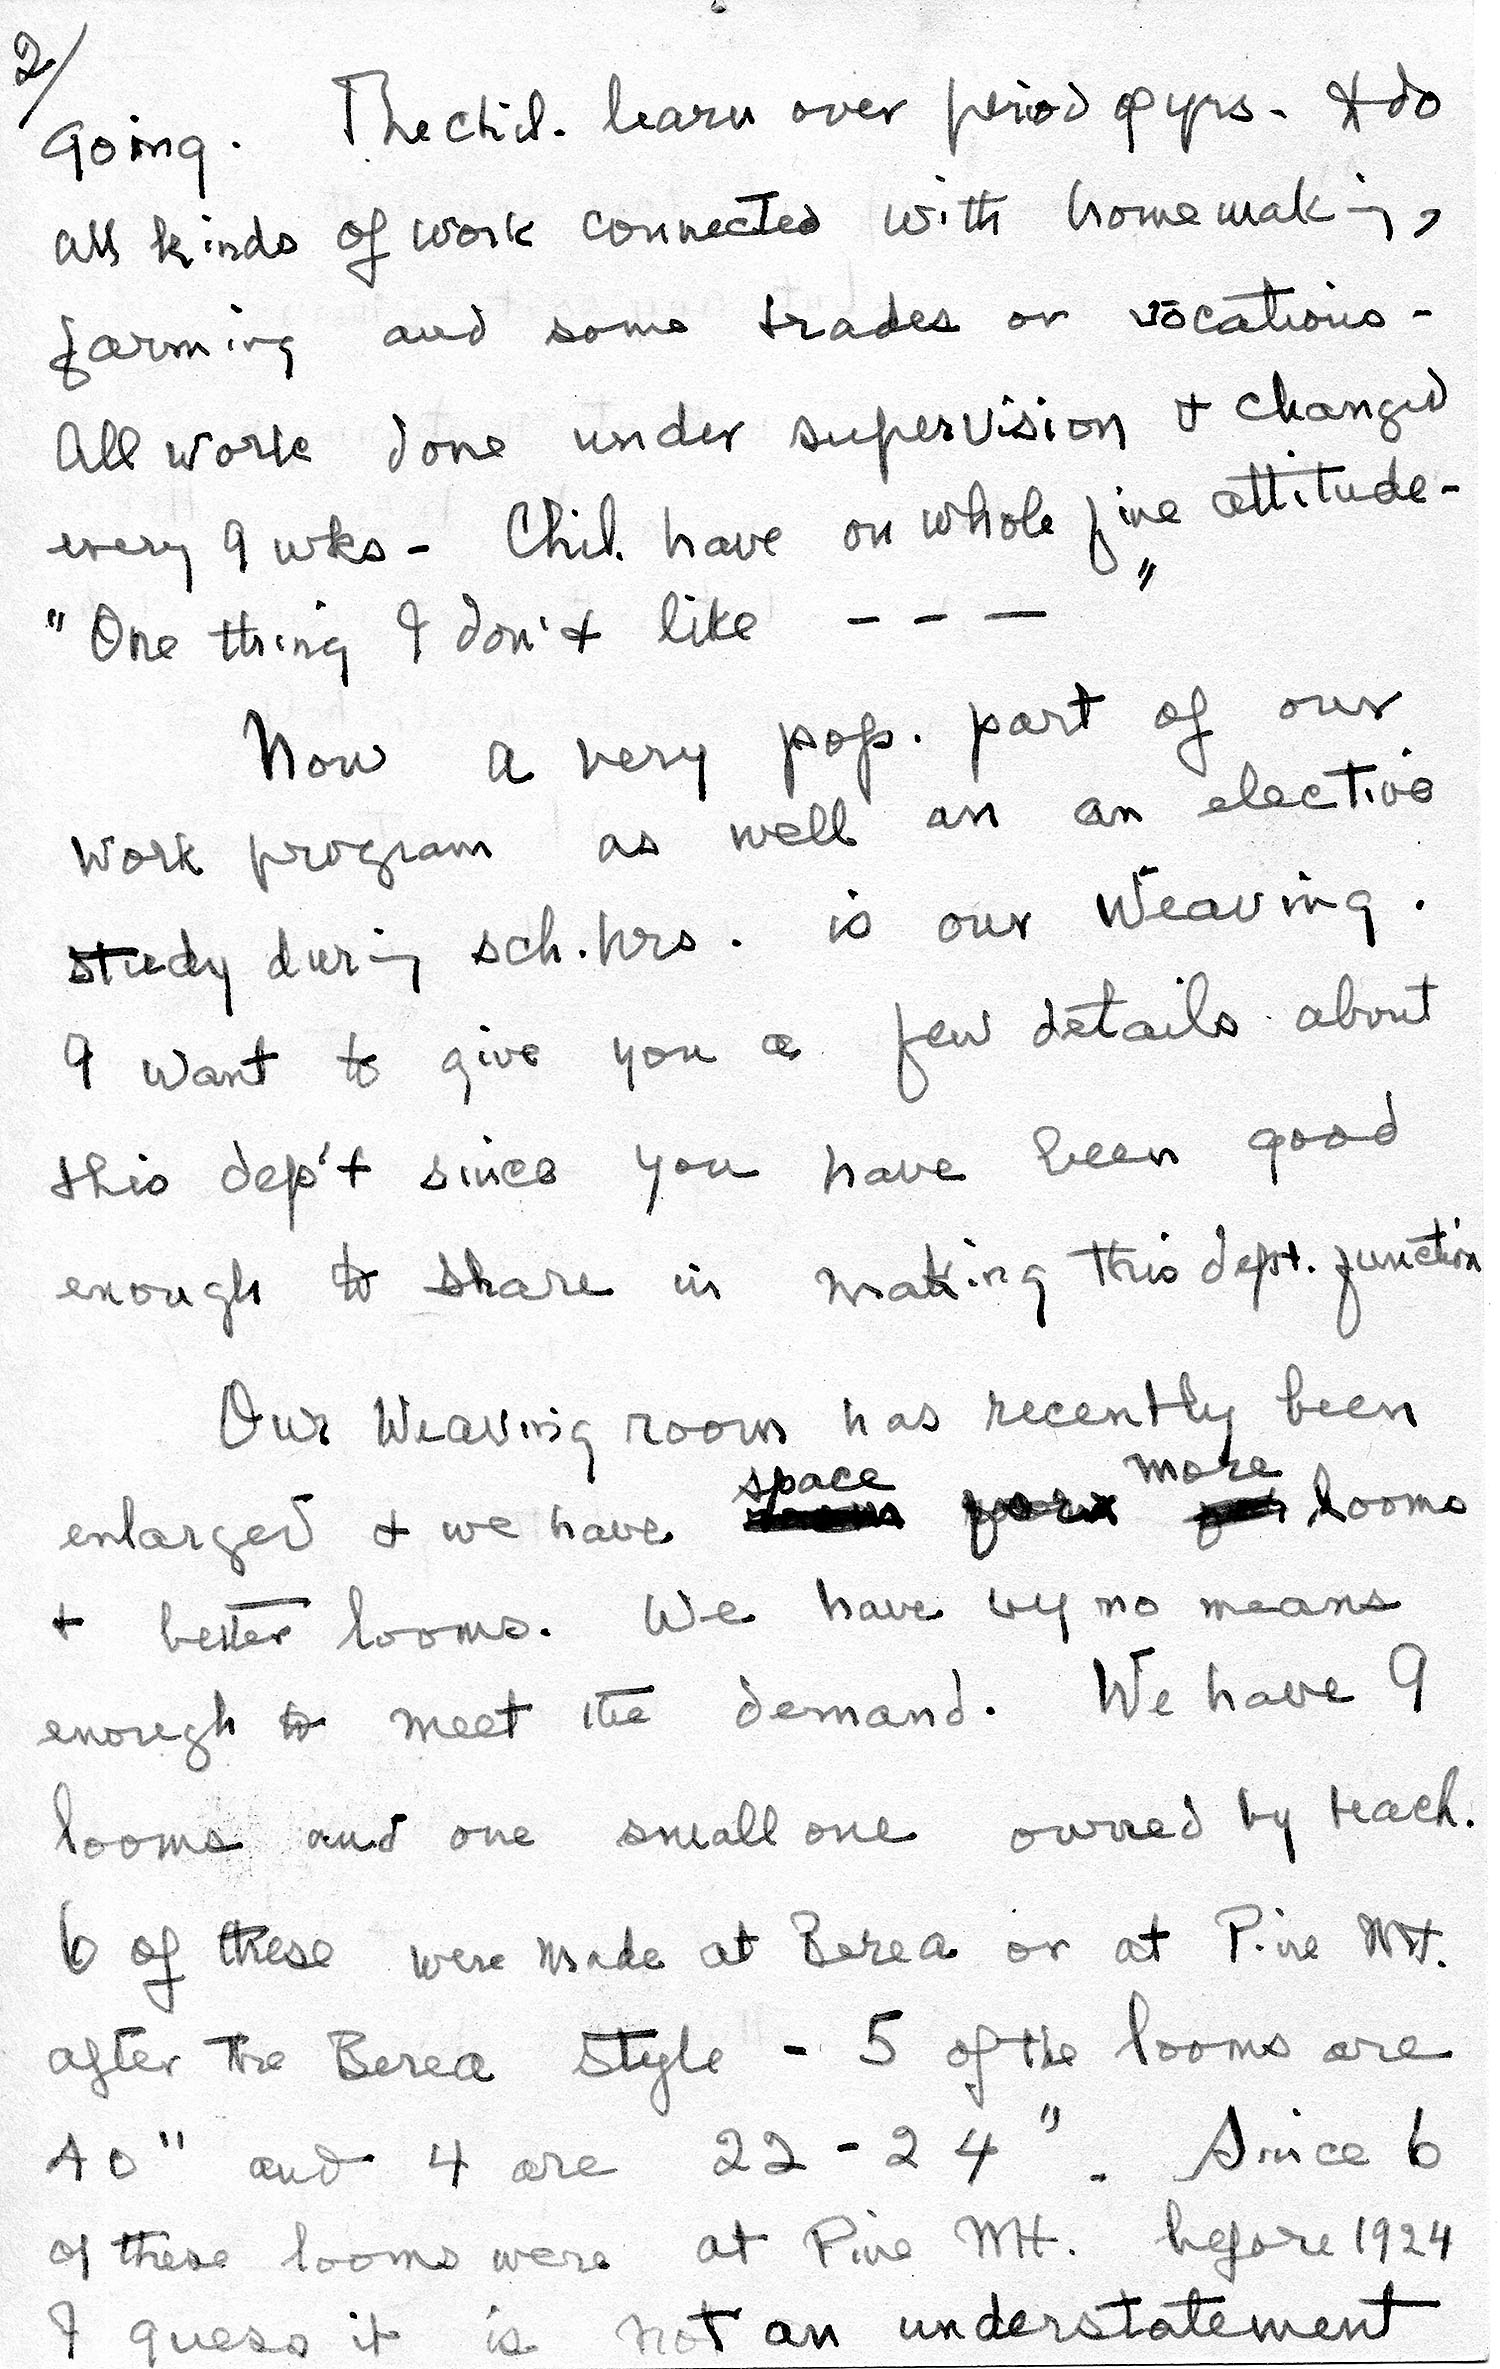 2/
going. The chil. learn over period of yrs. & do
all kinds of work connected with homemaking,
farming and some trades or vocations -
All work done under supervision & changed
every 9 wks - Chil. have on whole fine attitude -
"One thing I don't like - - - "
Now a very pop. part of our
work program as well as an elective
study during sch. hrs. is our Weaving.
I want to give you a few details about
this dep't since you have been good
enough to share in making this dept. function
Our Weaving room has recently been
space more
enlarged & we have for looms
& better looms. We have by no means
enough to meet the demand. We have 9
looms and one small one owned by teach.
6 of these were made at Berea or at Pine Mt.
after the Berea style - 5 of the looms are
40" and 4 are 22 - 24". Since 6
of these looms were at Pine Mt. before 1924
I guess it is not an understatement